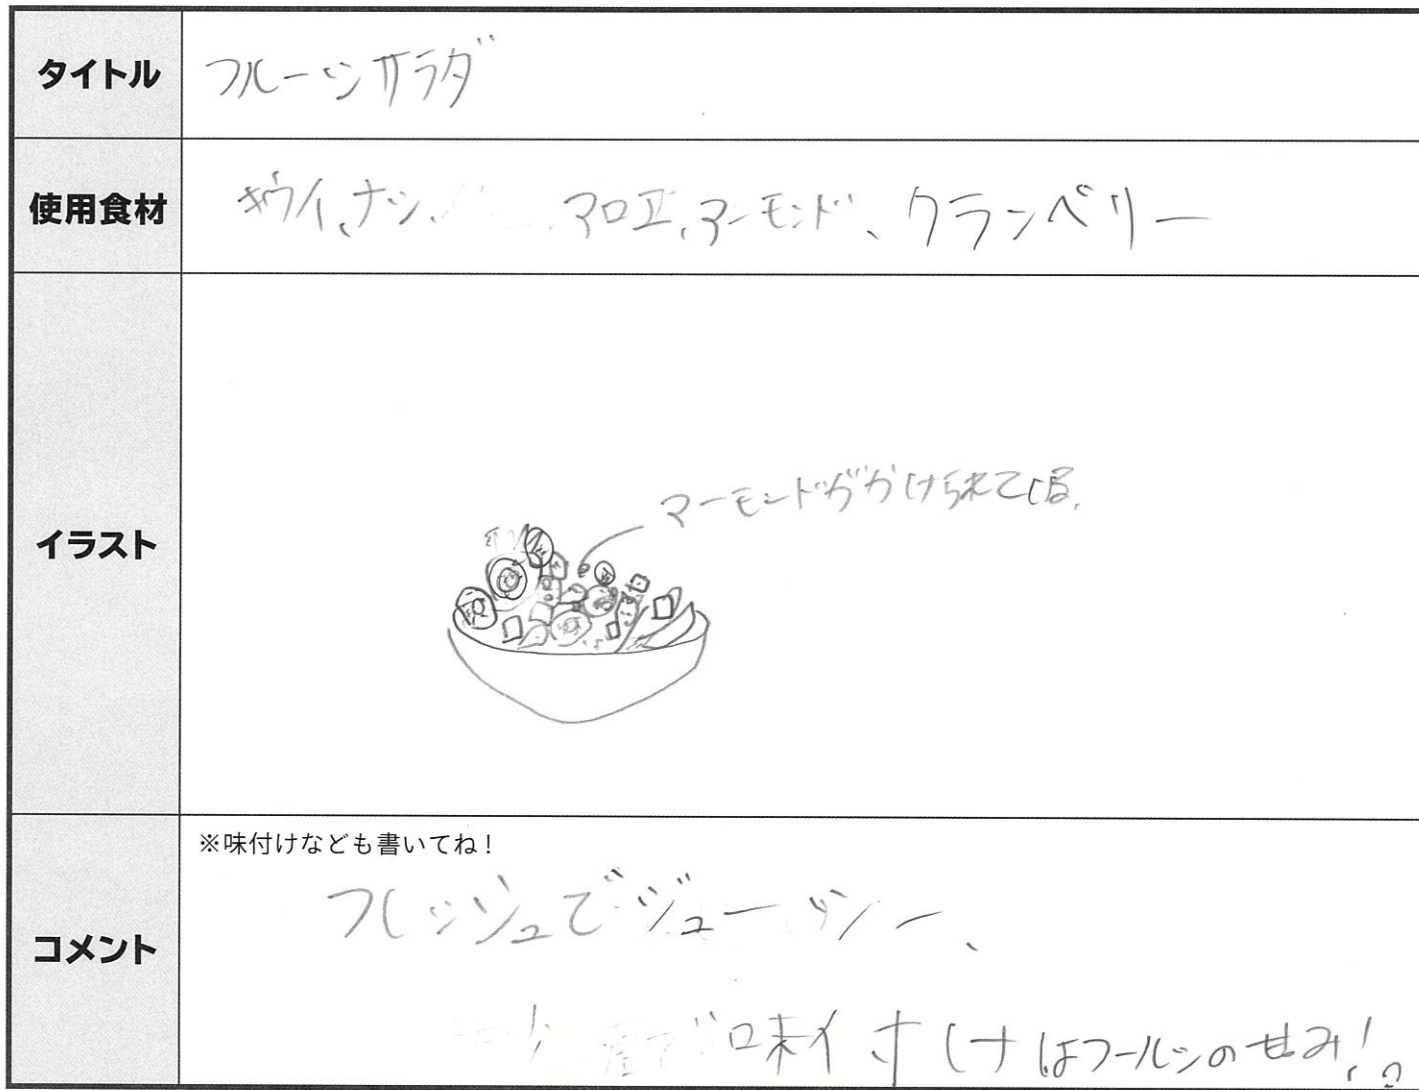 タイトル
フルーツサラダ
使用食材
キウイ、ナシ、アロエ、アーモンド、クランベリー
イラスト
アーモンドががけられて居
コメント
※味付けなども書いてね!
フレッシュでジューシー、
味付けはフールツの甘み!